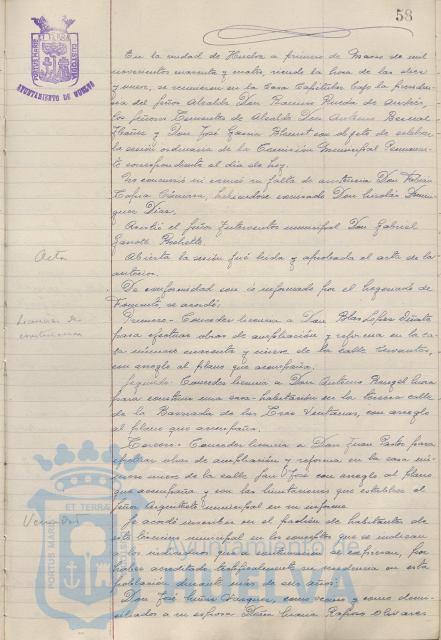 58
PORTUS MARIS ET TERRAE CUSTODIA
AYUNTAMIENTO DE HUELVA
En la ciudad de Huelva a primero de Marzo de mil
novecientos cuarenta y cuatro, siendo la hora de las diez
y nueve, se reunieron en la Casa Capitular bajo la presiden-
cia del señor Alcalde Don
los señores Tenientes de Alcalde Don Antonio Bernal
y Don José García con objeto de celebrar
la sesión ordinaria de la Comisión Municipal Permanen-
te correspondiente al día de hoy.
No concurrió ni excusó su falta de asistencia Don
Tapia habiéndose excusado Don Nicolás Domin-
guez Díaz.
Asistió el señor Interventor municipal Don Gabriel
Acta
Abierta la sesión fué leida y aprobada el acta de la
anterior.
De conformidad con lo informado por el Negociado de
Fomento, se acordó:
Licencias de
construcciones
Primero - Conceder licencia a Don Blas López
para efectuar obras de ampliación y reforma en la ca-
sa número cuarenta y nueve de la calle Cervantes,
con arreglo al plano que acompaña.
Segundo - Conceder licencia a Don Antonio Rangel
para construir una casa-habitación en la tercera calle
de la Barriada de las Tres Ventanas, con arreglo
al plano que acompaña.
Tercero - Conceder licencia a Don Juan Pastor para
efectuar obras de ampliación y reforma en la casa nú-
mero nueve de la calle San José con arreglo al plano
que acompaña y con las limitaciones que establece el
señor Arquitecto municipal en su informe.
Se acordó inscribir en el padrón de habitantes de
este término municipal en los conceptos que se indican
a los individuos que a continuación se expresan, por
haber acreditado testificalmente su residencia en esta
población durante más de seis años:
Don José Vázquez, como vecino y como domi-
ciliada a su esposa Doña María Raposo Olivares
Ayuntamiento de
HUELVA
PORTUS MARIS ET TERRAE